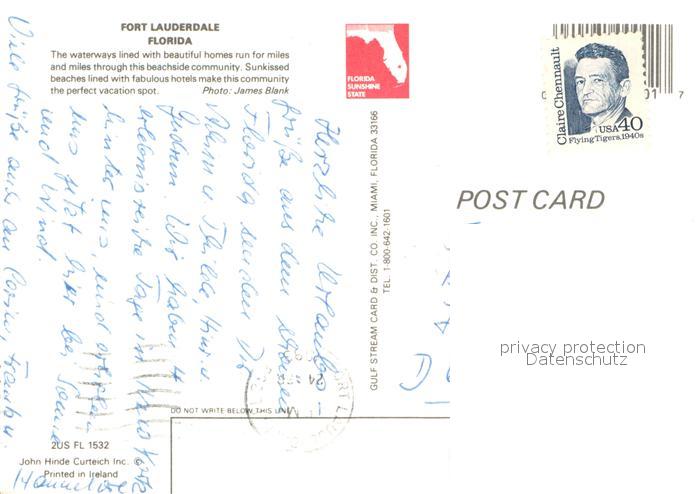 FORT LAUDERDALE
FLORIDA
The waterways lined with beautiful homes run for miles
and miles through this beachside community. Sunkissed
beaches lined with fabulous hotels make this community
the perfect vacation spot. Photo: James Blank
FLORIDA
SUNSHINE
STATE
Claire Chennault
USA 40
Flying Tigers, 1940s
01 7
POST CARD
GULF STREAM CARD & DIST. CO. INC., MIAMI, FLORIDA 33166
TEL. 1-800-642-1601
Herzliche Urlaubs-
grüße aus dem
Florida senden Dir
u. Thilde,
Gudrun. Wir haben 4
erlebnisreiche Tage in
hinter uns, und
uns jetzt hier bei Sonne
und Wind.
Viele Grüße auch an
Hannelore
DO NOT WRITE BELOW THIS LINE
2US FL 1532
John Hinde Curteich Inc. ©
Printed in Ireland
privacy protection
Datenschutz